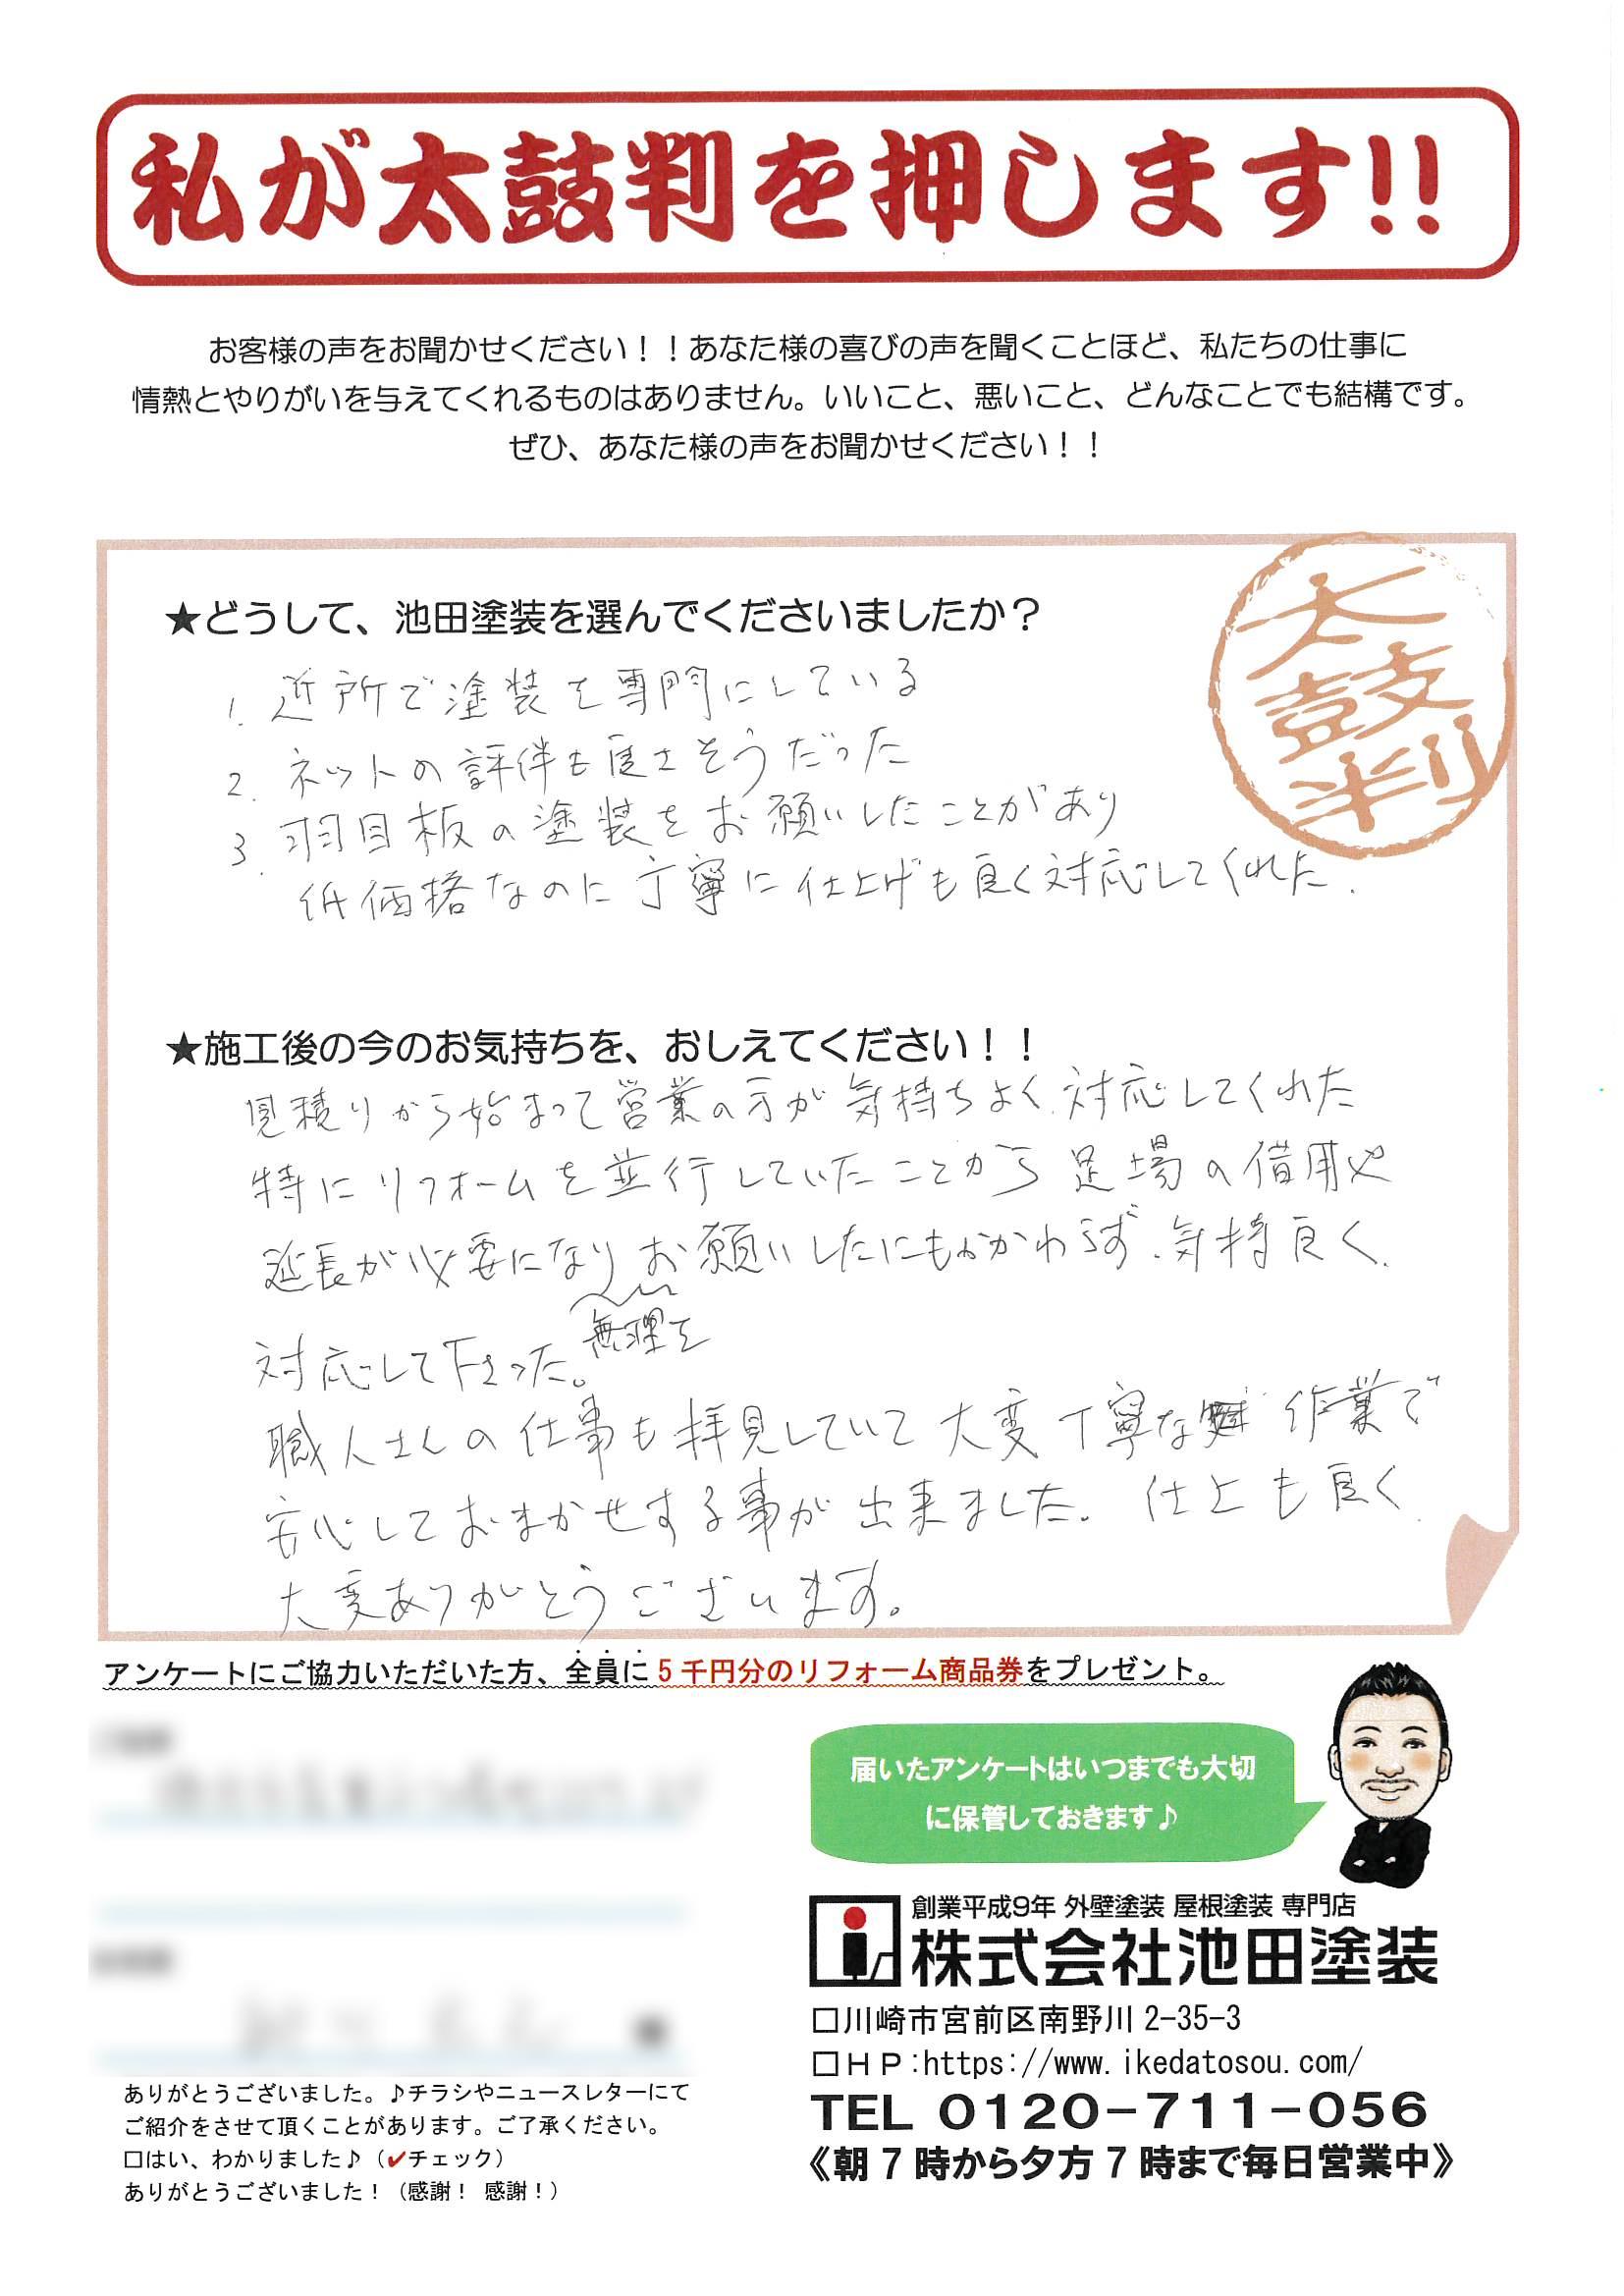 私が太鼓判を押します!!
お客様の声をお聞かせください！！あなた様の喜びの声を聞くことほど、私たちの仕事に
情熱とやりがいを与えてくれるものはありません。いいこと、悪いこと、どんなことでも結構です。
ぜひ、あなた様の声をお聞かせください！！
太鼓判
★どうして、池田塗装を選んでくださいましたか？
1. 近所で塗装を専門にしている
2. ネットの評伴も良さそうだった
3. 羽目板の塗装をお願いしたことがあり
低価格なのに丁寧に仕上げも良く対応してくれた.
★施工後の今のお気持ちを、おしえてください！！
見積りから始まって営業の方が気持ちよく対応してくれた
特にリフォームを並行していたことから足場の借用や
延長が必要になりお願いしたにもかかわらず、気持良く
無理を
対応して下さった。
職人さんの仕事も拝見していて大変丁寧な 作業で
安心しておまかせする事が出来ました。仕上も良く
大変ありがとうございます。
アンケートにご協力いただいた方、全員に5千円分のリフォーム商品券をプレゼント。
届いたアンケートはいつまでも大切
に保管しておきます♪
創業平成9年 外壁塗装 屋根塗装 専門店
株式会社池田塗装
□川崎市宮前区南野川 2-35-3
□ＨＰ:https://www.ikedatosou.com/
TEL 0120-711-056
《朝7時から夕方7時まで毎日営業中》
ありがとうございました。♪チラシやニュースレターにて
ご紹介をさせて頂くことがあります。ご了承ください。
□はい、わかりました♪（✔チェック）
ありがとうございました！（感謝！ 感謝！）